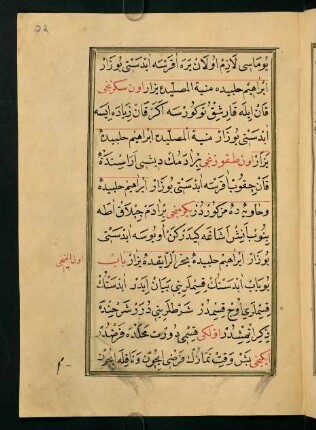 یوماسی لازم اولان یره اقرسه ابدستی بوزار
ابراهیم حلبیده منیة المصلیده یزار اون سکزنجی
قان ایله قارشق توکورسه اکر قان زیاده ایسه
ابدستی بوزار منیة المصلیده ابراهیم حلبیده
یزار اون طقوزنجی بر ادمك دیشی اراسنده
قان چقوب اقرسه ابدستی بوزار ابراهیم حلبیده
وخاویده مزکوردر یکرمنجی بر ادم چپلاق اطه
بنوب اینش اشاغه کیدرکن اویوسه ابدستی
بوزار ابراهیم حلبیده بحر الرایقده یزار باب
بو باب ابدستك قسملرینی بیان ایدر ابدستك
قسملری اوچ قسمدر شرطلرینی درر شرحنده
ذکر ایتمشدر اولکی قسمی دورت محلده فرضدر
ایکنجی بش وقت نمازك فرضی ایچون ونافله ایچون